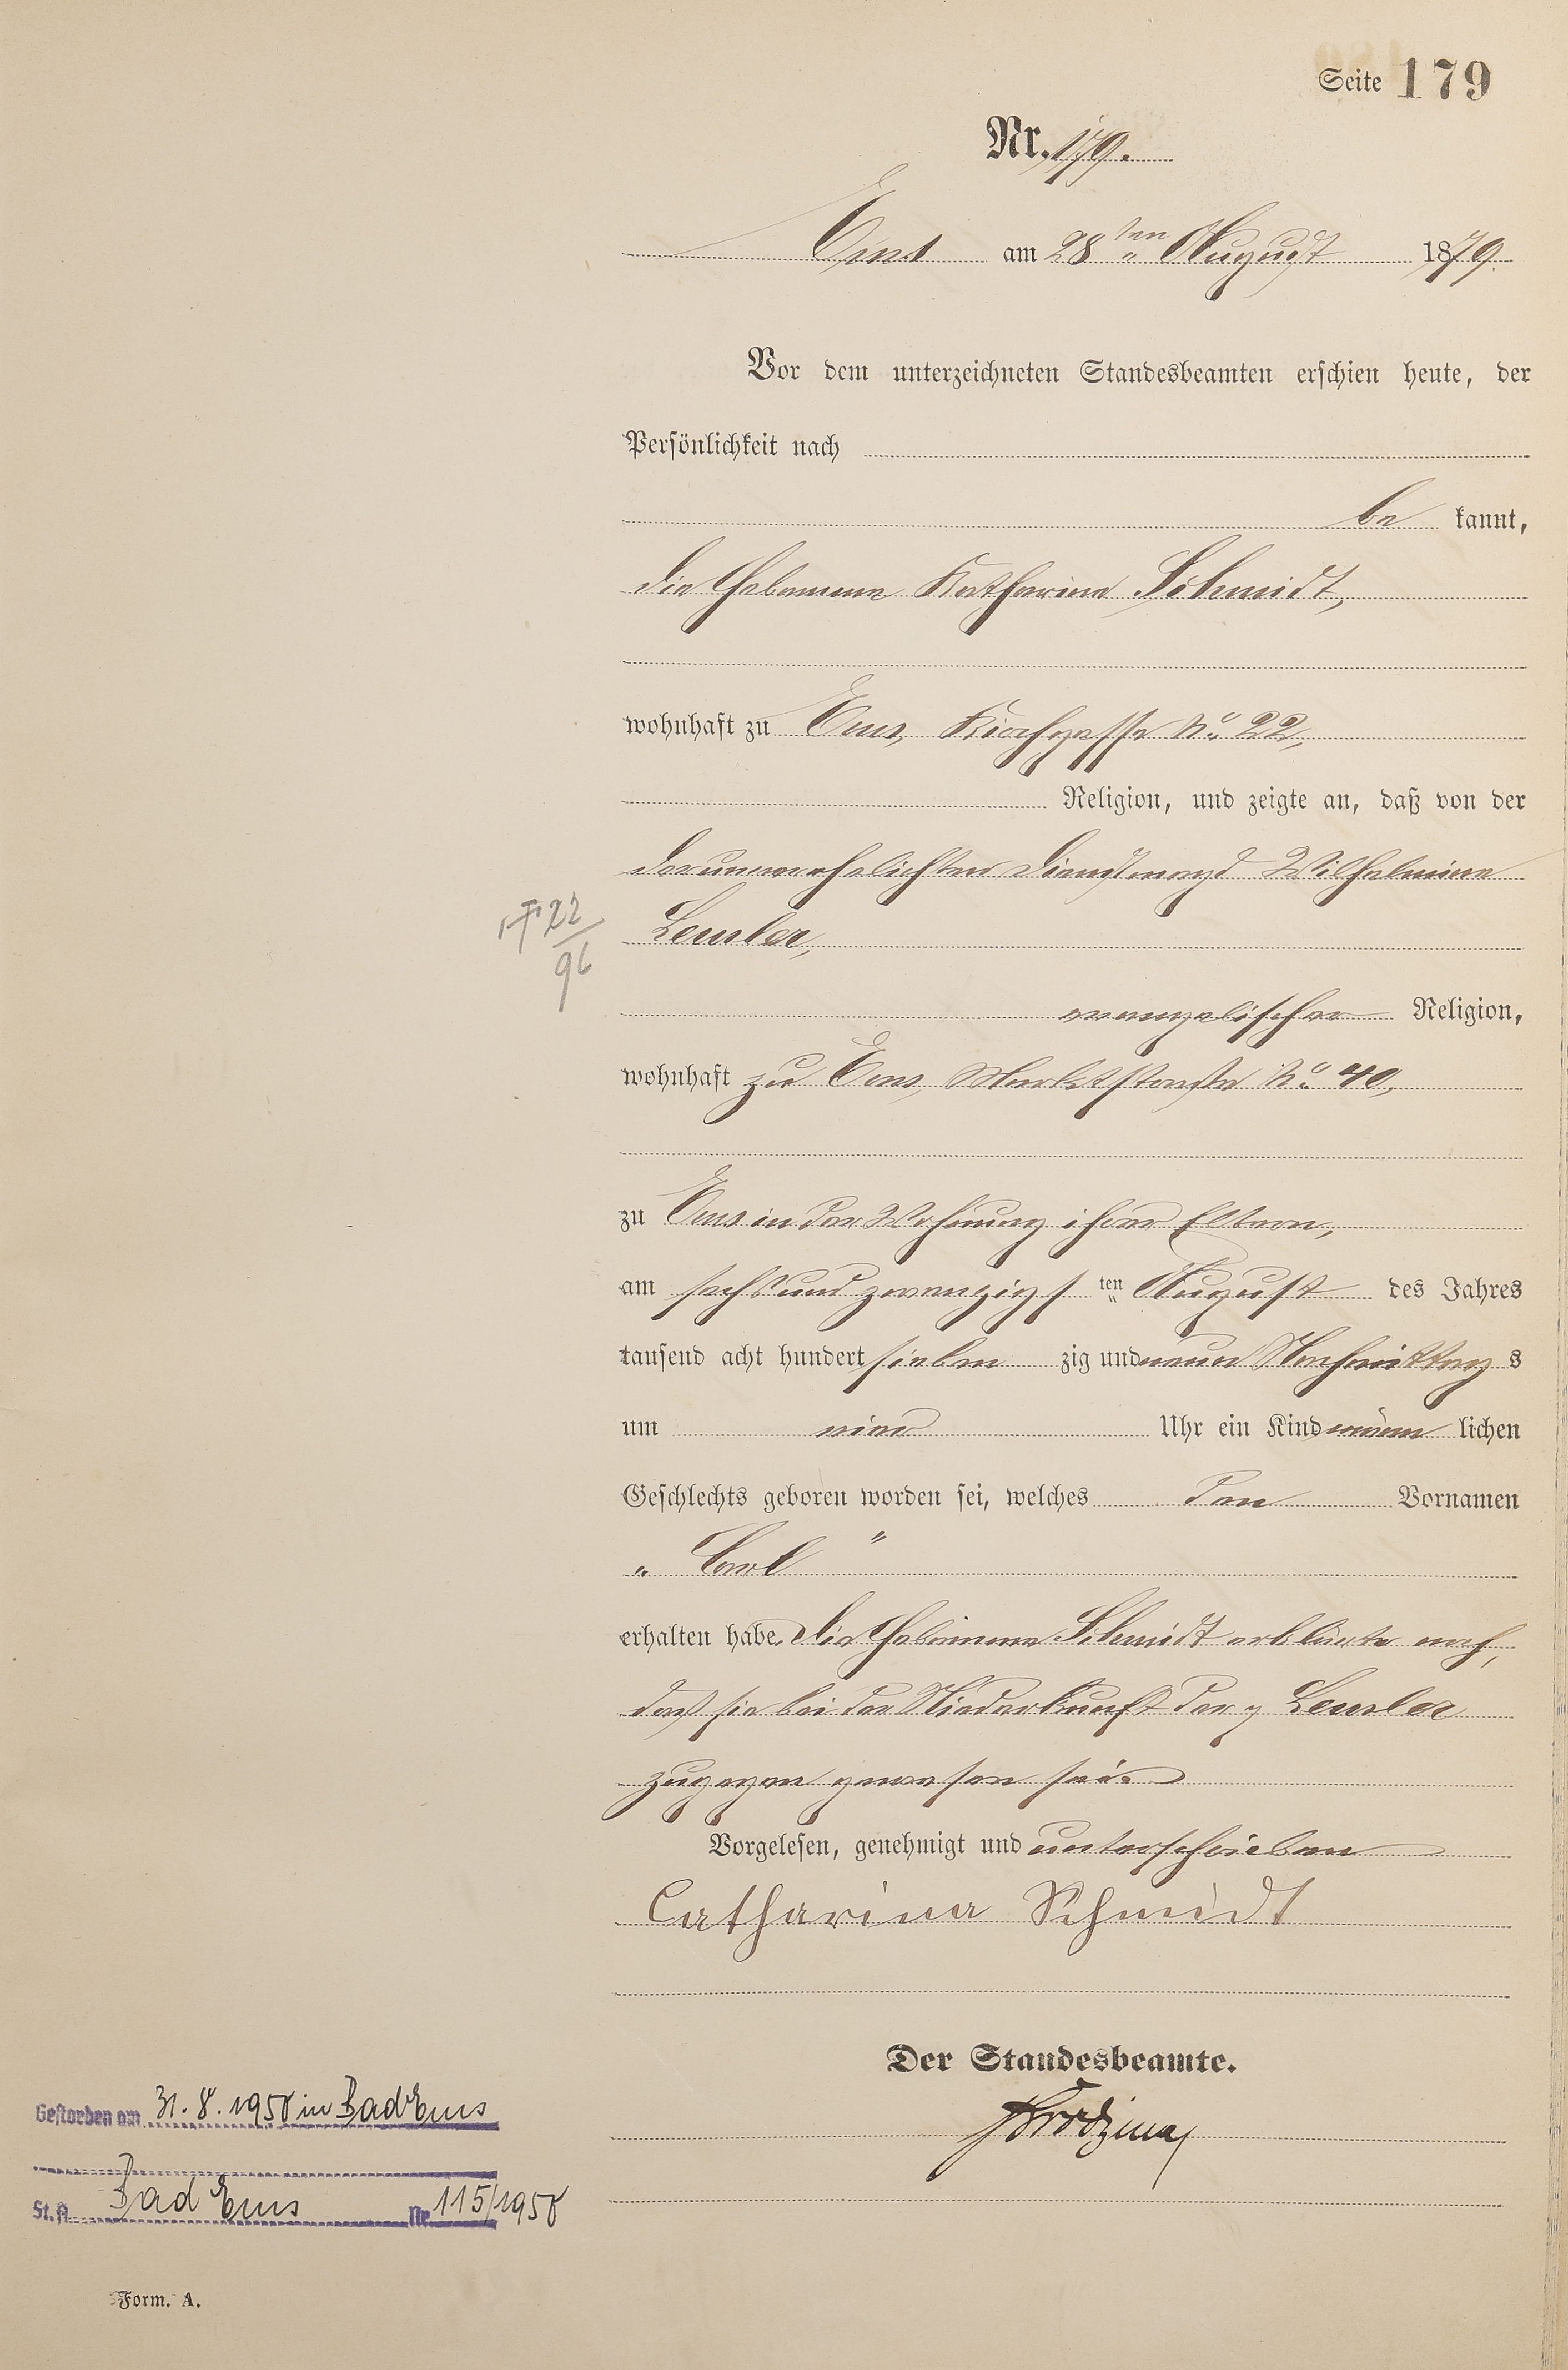 Seite 179
Nr. 179.
Ems am 28ten August 1879.
Vor dem unterzeichneten Standesbeamten erschien heute, der
Persönlichkeit nach
be kannt,
die Hebamme Katharina Schmidt,
wohnhaft zu Ems, Kirchgasse No. 22,
Religion, und zeigte an, daß von der
der unverehelichten Dienstmagd Wilhelmine
Lemler,
22
96
evangelischer Religion,
wohnhaft zu Ems, Marktstraße No. 40,
zu Ems in der Wohnung ihrer Eltern,
am sechs und zwanzigs ten August des Jahres
tausend acht hundert sieben zig und neun Nachmittag s
um vier Uhr ein Kind männ lichen
Geschlechts geboren worden sei, welches den Vornamen
„ Carl "
erhalten habe. Die Hebamme Schmidt erklärte noch,
daß sie bei der Niederkunft der Lemler
zugegen gewesen sei.
Vorgelesen, genehmigt und unterschrieben
Catharina Schmidt
Der Standesbeamte.
Gestorben am 31. 8. 1958 in Bad Ems
St. A. Bad Ems Nr. 115/1958
Form. A.